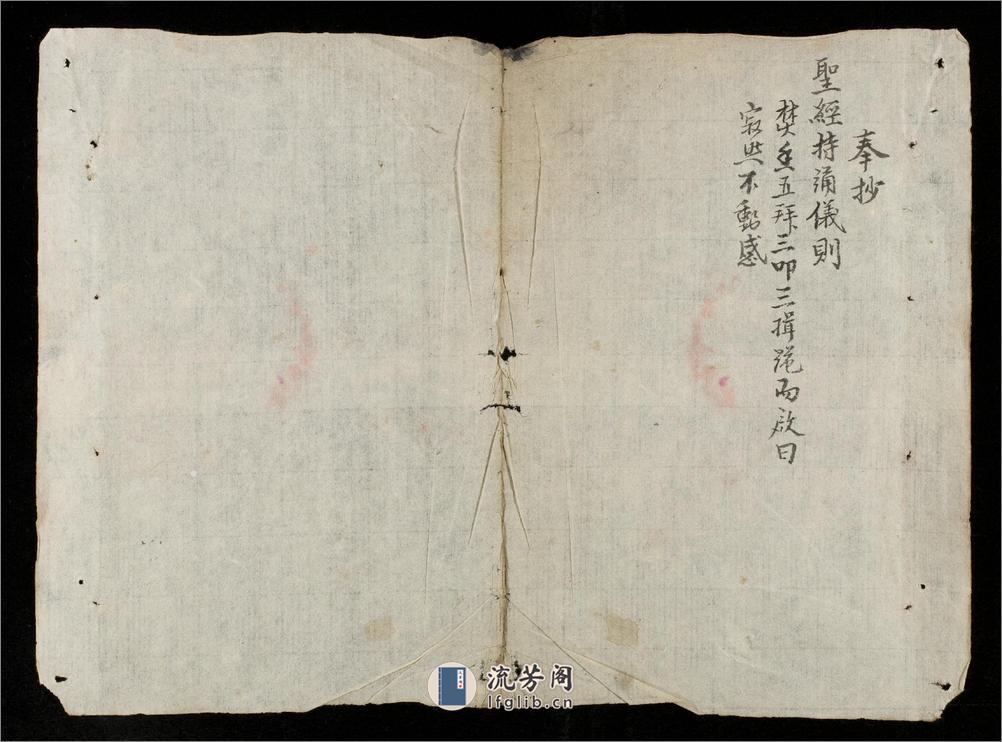 奉抄
聖經持誦儀則
焚香五拜三叩三揖跪而啟曰
寂然不動感
流芳阁
lfglib.cn